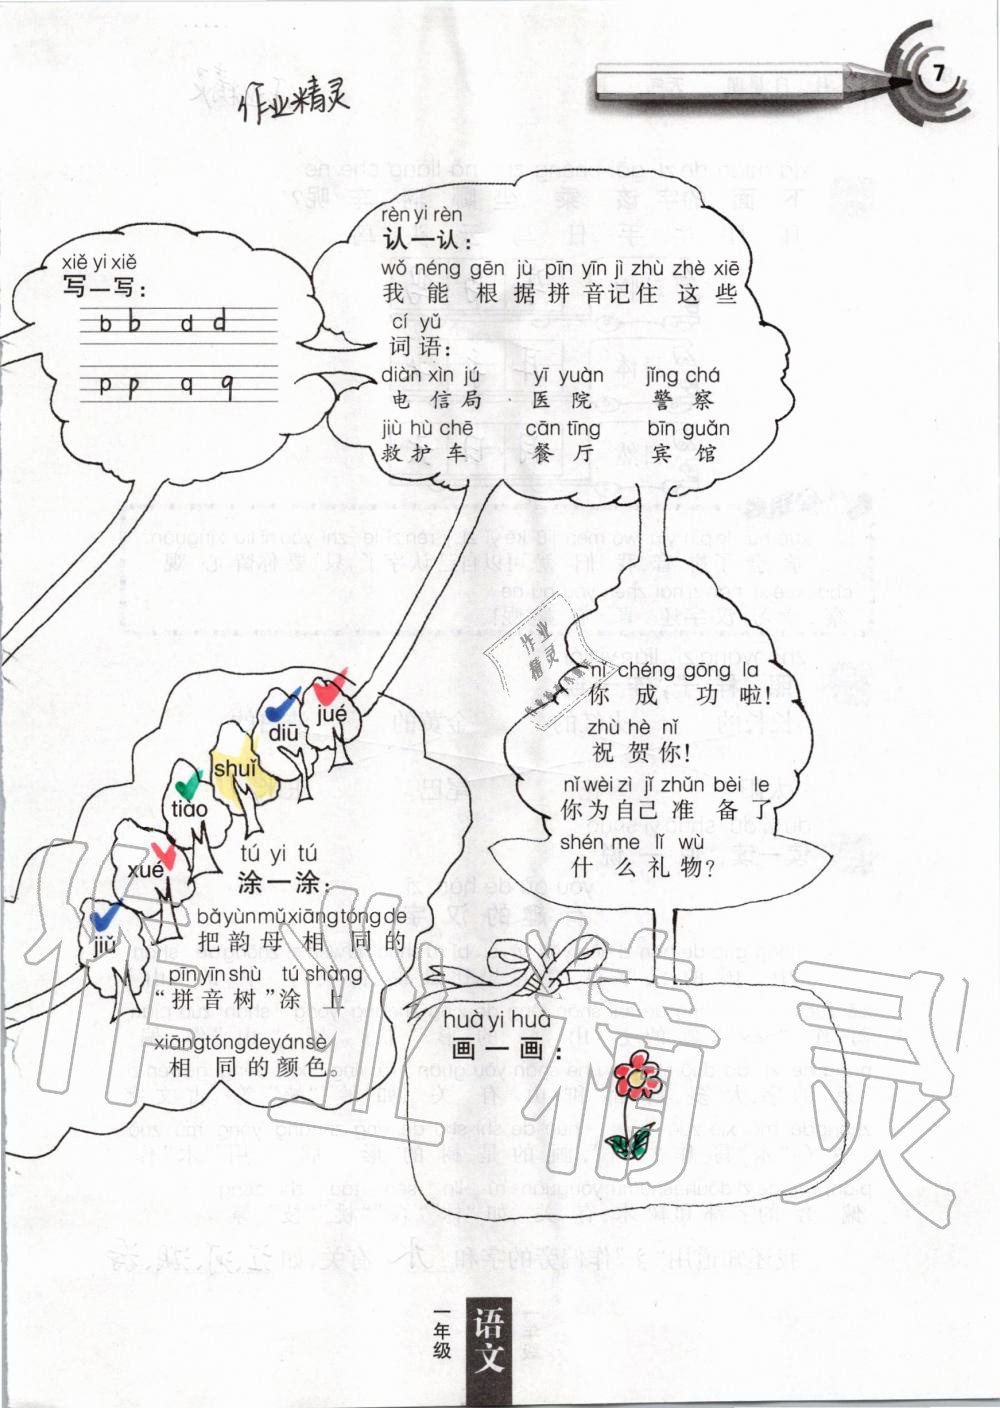 7
作业精灵
xiě yi xiě
写一写：
b b d d
p p q q
rèn yi rèn
认一认：
wǒ néng gēn jù pīn yīn jì zhù zhè xiē
我能根据拼音记住这些
cí yǔ
词语：
diàn xìn jú yī yuàn jǐng chá
电信局 医院 警察
jiù hù chē cān tīng bīn guǎn
救护车 餐厅 宾馆
nǐ chéng gōng la
你成功啦！
zhù hè nǐ
祝贺你！
nǐ wèi zì jǐ zhǔn bèi le
你为自己准备了
shén me lǐ wù
什么礼物？
jué
diū
shuǐ
tiào
xué
jiǔ
tú yi tú
涂一涂：
bǎ yùn mǔ xiāng tóng de
把韵母相同的
pīn yīn shù tú shàng
“拼音树”涂上
xiāng tóng de yán sè
相同的颜色。
huà yi huà
画一画：
作业精灵
作业精灵
一年级
语文